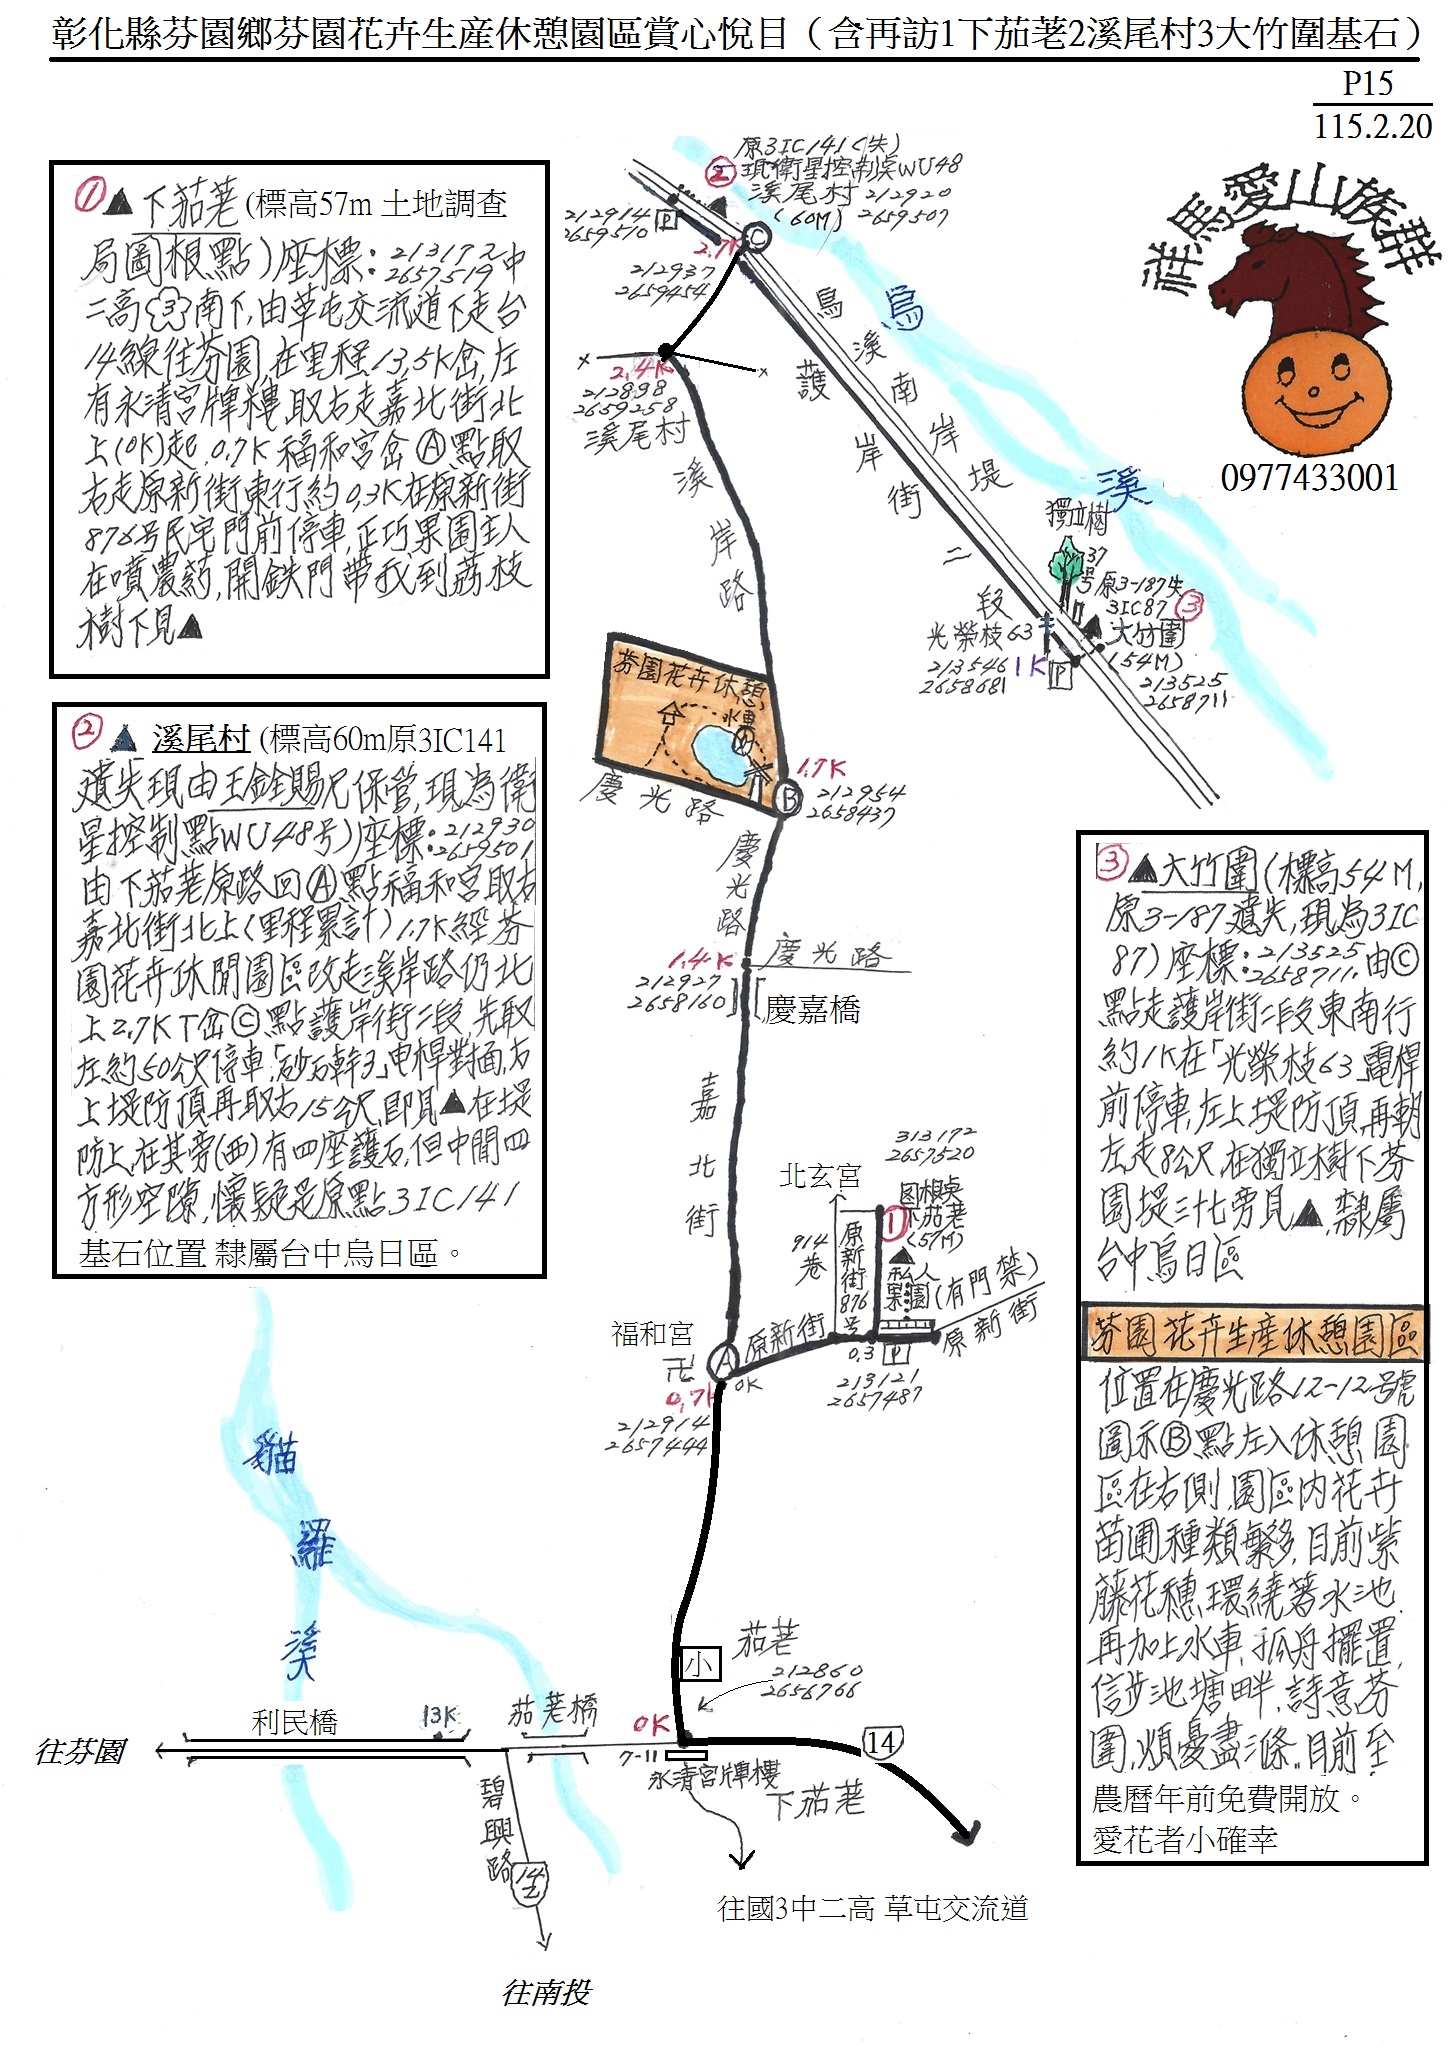 彰化縣芬園鄉芬園花卉生產休憩園區賞心悅目（含再訪1下茄荖2溪尾村3大竹圍基石）
P15
115.2.20
祥馬愛山族群
0977433001
① 下茄荖 (標高57m 土地調查
局圖根點）座標：213172 2657519 中
二高 3 南下,由草屯交流道下走台
14線往芬園,在里程13.5K岔,左
有永清宮牌樓,取右走嘉北街北
上(0K)起,0.7K福和宮岔Ⓐ點取
右走原新街東行約0.3K在原新街
876号民宅門前停車,正巧果園主人
在噴農药,開鉄門帶我到荔枝
樹下見▲
② ▲ 溪尾村 (標高60m原3IC141
遺失現由王金錫兄保管,現為衛
星控制點WU48号)座標：212930 2659501
由下茄荖原路回Ⓐ點福和宮取右
嘉北街北上(里程累計)1.7K經芬
園花卉休閒園區改走溪岸路仍北
上2.7KT岔Ⓒ點護岸街二段,先取
左約50公尺停車,「砂石幹3」电桿對面,右
上堤防頂再取右15公尺,即見▲在堤
防上,在其旁(西)有四座護石,但中間四
方形空隙,懷疑是原點3IC141
基石位置 隸屬台中烏日區。
③ ▲大竹圍(標高54M,
原3-187遺失,現為3IC
87)座標：213525 2658711.由Ⓒ
點走護岸街二段東南行
約1K在「光榮枝63」電桿
前停車,左上堤防頂,再朝
左走8公尺,在獨立樹下芬
園堤三北旁見▲,隸屬
台中烏日區
芬園花卉生產休憩園區
位置在慶光路12-12号號
圖示Ⓑ點左入休憩園
區在右側,園區內花卉
苗圃種類繁多,目前紫
藤花穗,環繞著水池.
再加上水車,孤舟擺置,
信步池塘畔,詩意芬
園,煩憂盡滌..目前至
農曆年前免費開放。
愛花者小確幸
原3IC141(失)
② 現衛星控制点WU48
溪尾村 212920
(60M) 2659507
212914
2659510
P
2.7K
C
212937
2659454
2.4K
212898
2659258
溪尾村
溪岸路
烏溪南岸堤
護岸街二段
烏溪
獨立樹
37号
原3-187失
3IC87 ③
大竹圍
(54M)
213525
2658711
光榮枝63
213546
2658681
1K
P
芬園花卉休憩
水車
慶光路
1.7K
B
212954
2658437
慶光路
1.4K
慶光路
212927
2658160
慶嘉橋
嘉北街
北玄宮
313172
2657520
图根点
① 下茄荖
(57M)
914巷
原新街876号
私人
果園(有門禁)
福和宮
卍
A
0K
原新街
原新街
0.3
P
213121
2657487
0.7K
212914
2657444
貓羅溪
小
茄荖
212860
2656766
利民橋
13K
茄荖橋
0K
7-11
永清宮牌樓
14
往芬園
下茄荖
碧興路
14乙
往國3中二高 草屯交流道
往南投